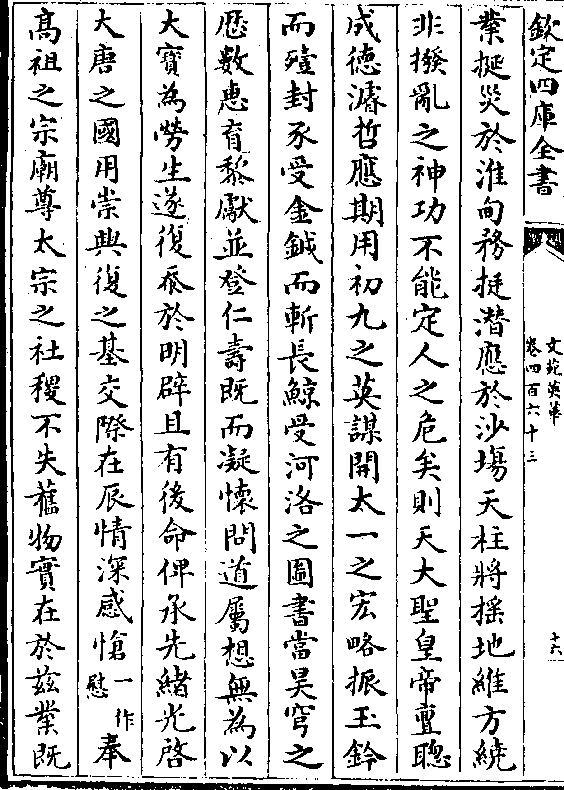 欽定四庫全書
文苑英華
卷四百六十三
十六
業挻災於淮甸務挺潛應於沙塲天柱將揺地維方繞
非撥亂之神功不能定人之危矣則天大聖皇帝亶聰
成德濬哲應期用初九之英謀開太一之宏略振玉鈐
而殪封豕受金鉞而斬長鯨受河洛之圖書當昊穹之
厯數惠育黎獻並登仁壽既而凝懷問道屬想無為以
大寳為勞生遂復辰於明辟且有後命俾承先緒光啓
大唐之國用崇興復之基交際在辰情深感愴一作慰奉
髙祖之宗廟尊太宗之社稷不失舊物實在於兹業既